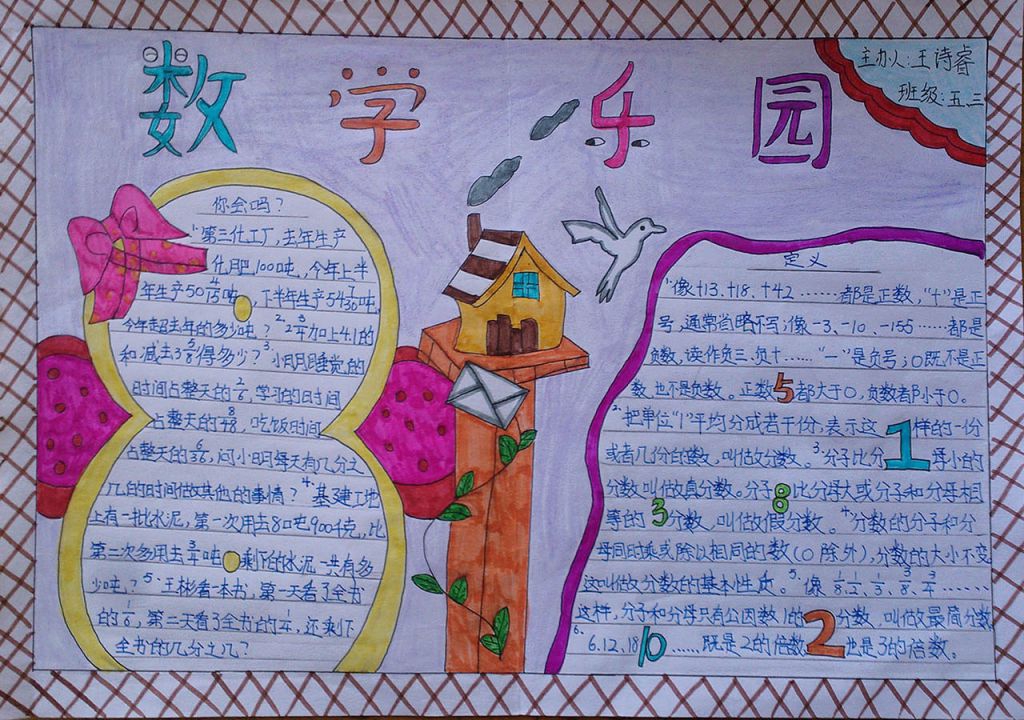 数学乐园
主办人:王诗睿
班级:五.三
你会吗?
1.第三化工厂,去年生产
化肥100吨,今年上半
年生产50 4/15吨,下半年生产54 7/30吨,
今年超去年的多少吨?2. 2 3/4加上4.1的
和减去3 5/8得多少?3.小明睡觉的
时间占整天的2/6,学习的时间
占整天的8/48,吃饭时间
占整天的6/36,问小明每天有几分之
几的时间做其他的事情?4.基建工地
上有一批水泥,第一次用去8吨900千克,比
第二次多用去3/4吨,剩下的水泥一共有多
少吨?5.王彬看一本书,第一天看了全书
的1/6,第二天看了全书的1/4,还剩下
全书的几分之几?
定义
1.像+13、+18、+42……都是正数,“+”是正
号,通常省略不写;像-3、-10、-155……都是
负数,读作负三、负十……“-”是负号;0既不是正
数也不是负数。正数5都大于0,负数都小于0。
2.把单位“1”平均分成若干份,表示这1样的一份
或者几份的数,叫做分数。3.分子比分母小的
分数叫做真分数。分子8比分母大或分子和分母相
等的3分数,叫做假分数。4.分数的分子和分
母同时乘或除以相同的数(0除外),分数的大小不变
这叫做分数的基本性质。5.像
这样,分子和分母只有公因数1的2分数,叫做最简分数
6. 6.12.18 10……既是2的倍数也是3的倍数。